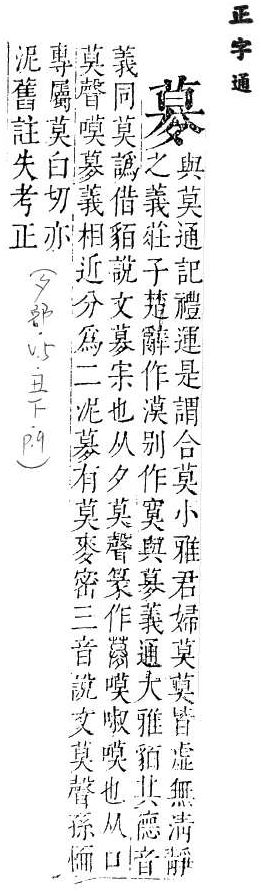 正字通
𡖶
與莫通記禮運是謂合莫小雅君婦莫莫皆虛無清靜
之義莊子楚辭作漠别作寞與𡖶義通大雅貊其德音
義同莫譌借貊說文𡖶宋也从夕莫聲篆作嗼㖩嗼也从口
莫聲嗼𡖶義相近分爲二泥𡖶有莫麥密三音說文莫聲孫愐
專屬莫白切亦
泥舊註失考正
(夕部.V5.丑下.P.9)